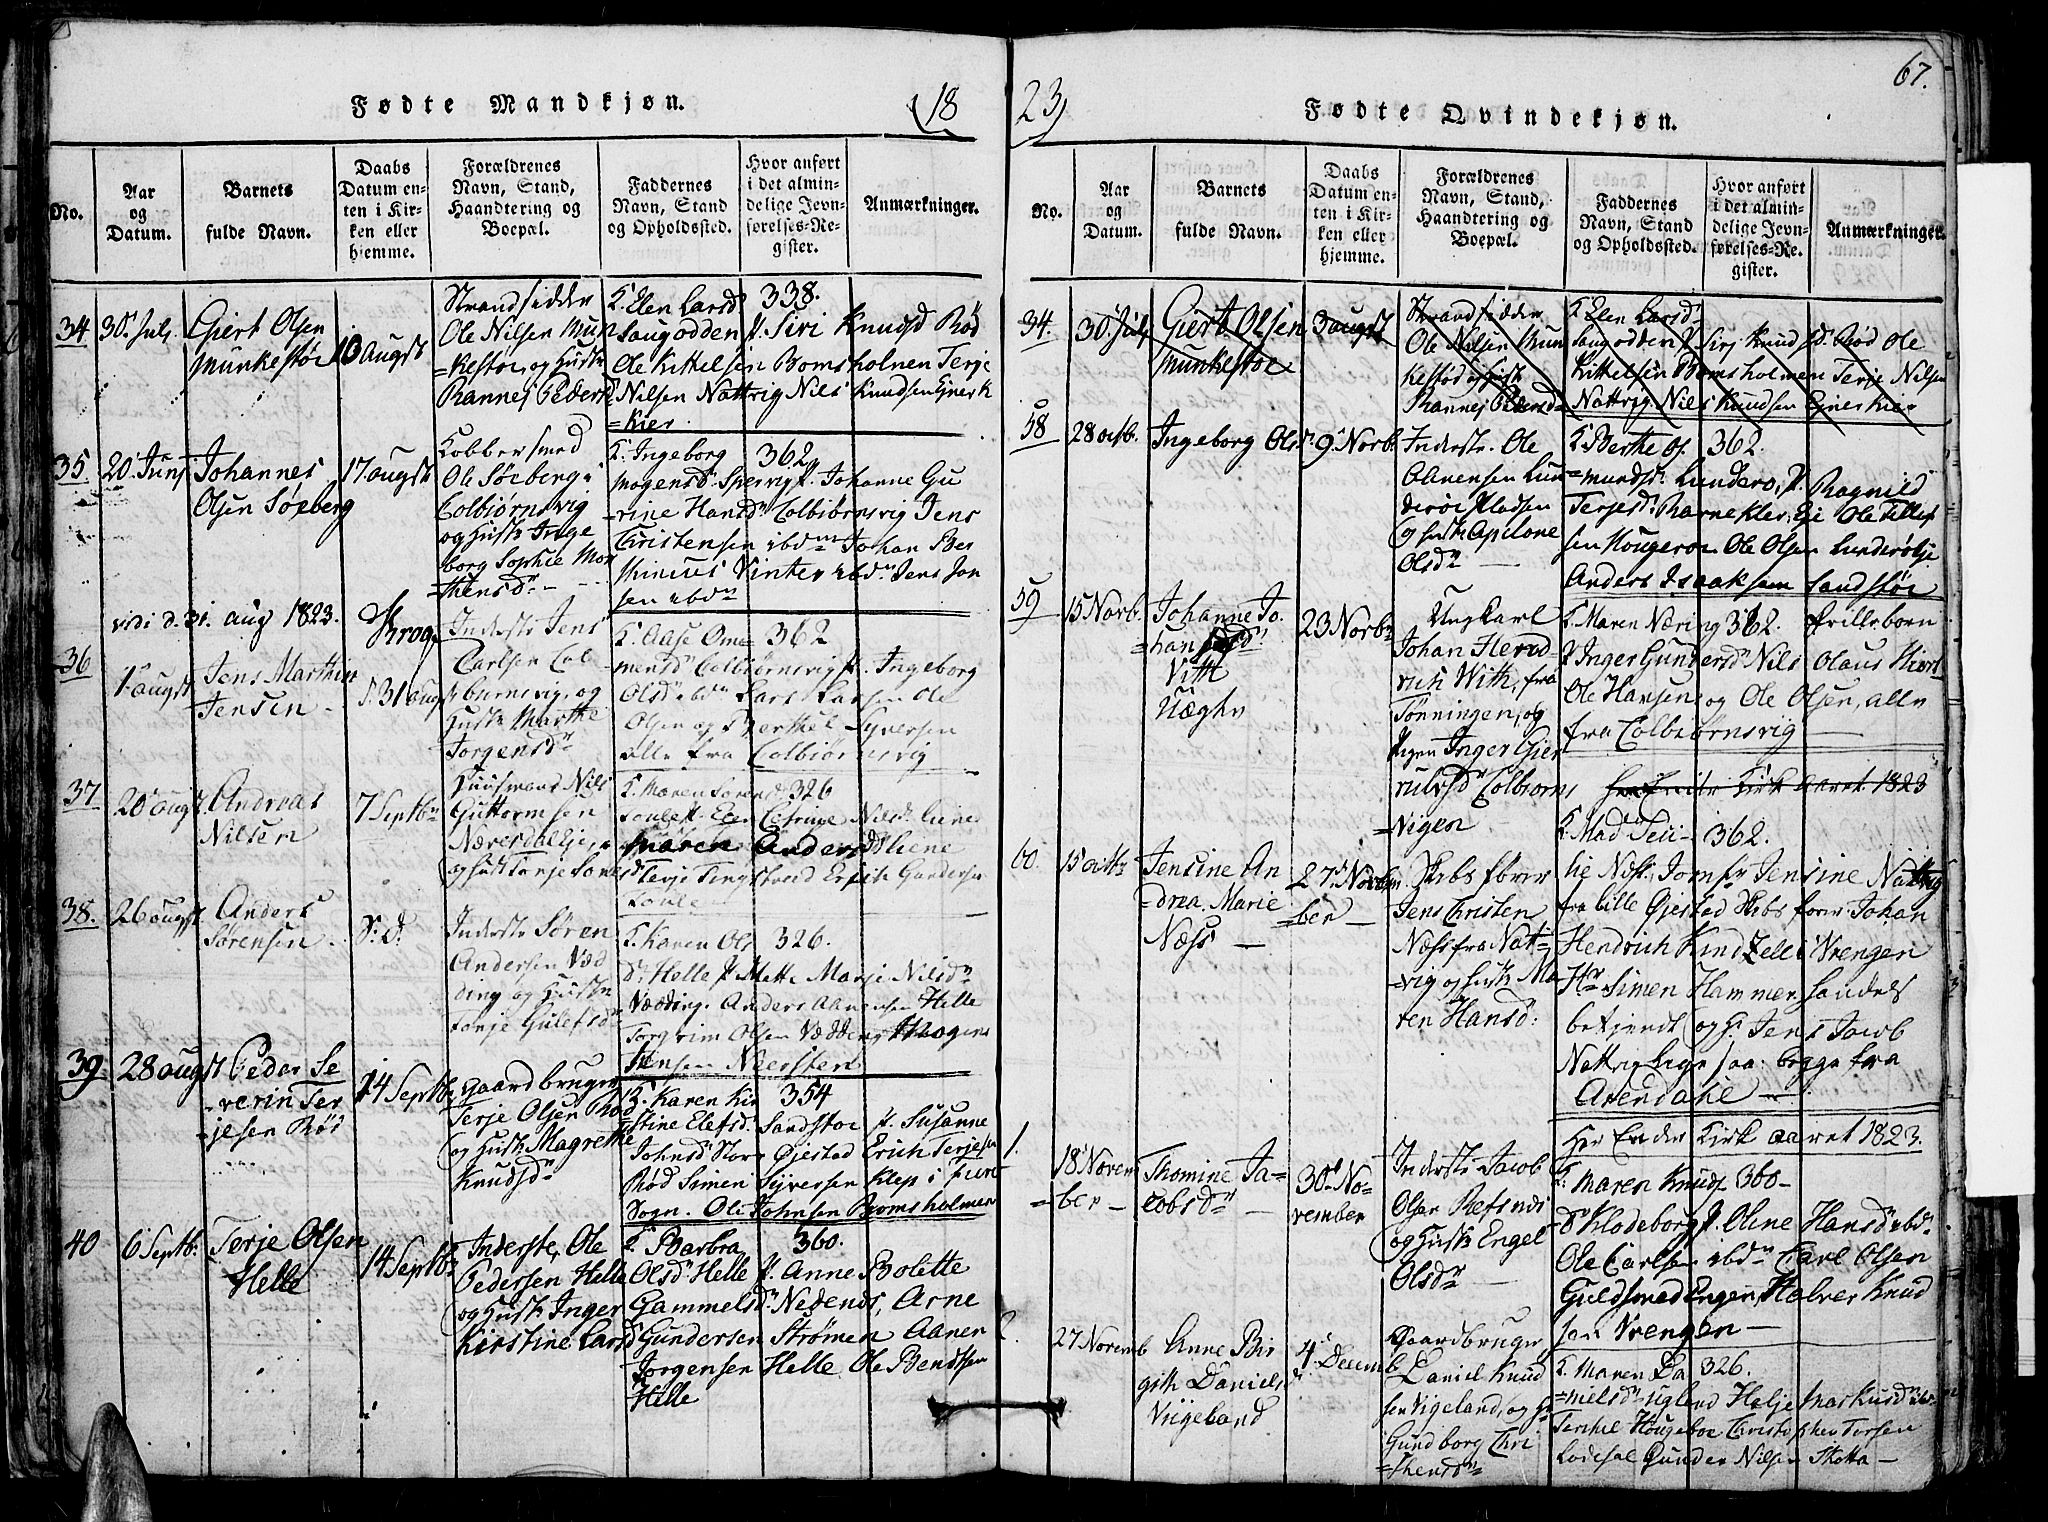 67.
Fødte Mandkjøn.
18
No.
Aar
og
Datum.
Barnets
fulde Navn.
Daabs
Datum en-
ten i Kir-
ken eller
hjemme.
Forældrenes
Navn, Stand,
Haandtering og
Boepæl.
Faddernes
Navn, Stand
og Opholdssted.
Hvor anført
i det almin-
delige Jevn-
førelses-Re-
gister.
Anmærkninger.
34
30 July
Giert Olsen
Munkestøe
13 Augst
Strandsidder
Ole Nilsen Mun
=kestoe og Hust
Rannej Peders
K. Elen Larsd
Saugodden p. Siri Knudsd Röd
338.
Ole Kittelsen Bomsholmen Terje
Nilsen Nattvig Nils Knudsen Gjers K
=kier
35
20 Junj
Johannes
Olsen Sörberg
17 augst
Kobbersmed
Ole Sörberg i
Colbiörnsvig
og Hust Inge
borg Sophie Mor
thensdr
K. Ingeborg
362
Mogensd Spervig p. Johanne Gu
rine Hansd Colbiörnsvig Jens
Christensen ibdm Johan Ber
Vinter ibdm Jens Jon
sen ibdm
vidi d. 31. aug 1823. Krog
36
1 augst
Jens Marthin
Jensen
d. 31 augst
Inderste Jens
Carlsen Col-
biørnsvig og
Hust Marthe
Jorgensdr
K. Aase Om=
362
mensd Colbiørnsvig p. Ingeborg
Olsd ibm Lars Larsen Ole
Olsen og Berthel Syversen
alle fra Colbiørnsvig
37
20 augst
Andreas
Nilsen
7 Septbr
Huusmand Nils
Guttormsen
Næverdal Eje,
og Hust Torje
K. Maren Sørensd
326
Maren Andersd Hiene
Terje Tingstveed Erich Gundersen
38.
26 augst
Anders
Sørensen
S: d:
Inderste Søren
Andersen Væd
ding og Hust
Torje Gulefsdr
K. Karen Ols
326.
dr Helle p. Mette Marje Nilsdr
Vædding. Anders Aanensen Helle
Torgrim Olsen Vædding Mogens
Jensen Neersten
39
28 augst
Peder Se
verin Ter
=jesen Röd
14 Septbr
Gaardbruger
Terje Olsen Röd
og Hust Magrethe
Knudsdr
K. Karen Kir
354
stine Elefsd Sandstoe p. Susanne
Johnsd Store Øjestad Erich Terjesen
Röd Simen Syversen Klep i Fiere
Sogn. Ole Johnsen Bomsholmen
40
6 Septbr
Terje Olsen
Helle
14 Septbr
Inderste, Ole
Pedersen Helle
og Hust Inger
Kirstine Larsd
K. Barbra
360.
Olsd Helle p. Anne Bolette
Gammelsd Nedends, Arne
Gundersen Strömen Aanen
Jorgensen Helle Ole Bendtsen
Helle
23
Fødte Qvindekjøn.
No.
Aar
og
Datum.
Barnets
fulde Navn.
Daabs
Datum en-
ten i Kir-
ken eller
hjemme.
Forældrenes
Navn, Stand,
Haandtering og
Boepæl.
Faddernes
Navn, Stand
og Opholdssted.
Hvor anført
i det almin-
delige Jevn-
førelses-Re-
gister.
Anmærkninger.
34.
30 July
Giert Olsen
Munkestoe
3 augst
Strandsidder
Ole Nilsen Mun
kestød og Hust
Rannej Pedersd
K. Elen Larsd
Saugodden p Siri Knudsd. Röd Ole
Kittelsen Bomsholmen Terje Nilsen
Nattvig Nils Knudsen Gjers Kier
58
28 octb.
Ingeborg Olsdr
9 Novb.
Inderste Ole
Aanensen Lun
deröe Pladsen
og Hust Apelone
Olsdr
K. Berthe Os
362.
=mundsd Lunderø, p. Ragnild
Terjesd Barnekler Eje Ole Tellef
sen Hougerøe Ole Olsen Lunderø Eje
Anders Isaaksen Sandstöe
59
15 Novb.
Johanne Jo-
=hansd
Vith
Uægte
23 Novbr
Ungkarl
Johan Hend
rich With, fra
Tønningen, og
Pigen Inger Gier
rulsd Colbiørns
=vigen
K. Maren Næring
362.
Frilleborn
p Inger Gundersd Nils Olaus
Ole Hansen og Ole Olsen, alle
fra Colbiørnsvig
her Ender Kirk aaret 1823
60.
15 octbr
Jensine An
=drea Marie
Næss
27 Novem
=ber
Skibsfører
Jens Christen
Næss fra Nat=
=vig og Hust Ma
ren Hansd:
K. Mad Ceci-
362.
lie Næss Jomfr Jensine Nattvig
fra Lille Øjestad Skibsfører Johan
Hendrich Kindzelle Vrengen
Hr Simen Hammer Handels
betjendt og Hr Jens Jacob
Nattvig lige saa begge fra
Arendahl
Her Ender Kirk aaret 1823.
1.
18 Novem
=ber
Thomine Ja=
cobsdr
30 No-
vember
Inderste Jacob
Olsen Refsnes
og Hust Engel
Olsdr
K: Maren Knuds
360
dr Klodeborg p. Oline Hansd ibdr
Ole Carlsen ibdm Carl Olsen
Guldsmed Engen, Halvor Knud
sen Vrengen
2.
27 Novemb
Anne Bir
gith Daniels
Viigeland
4 Decem
b
Gaardbruger
Daniel Knud
sen Vigeland, og H
Gundborg Chri
=stensdr
K. Maren Da
326.
=nielsdr Ugland Helje Markusd ibdr
Terkel Hougeboe Christopher Torsen
Lodesøl Gunder Nilsen Skotta